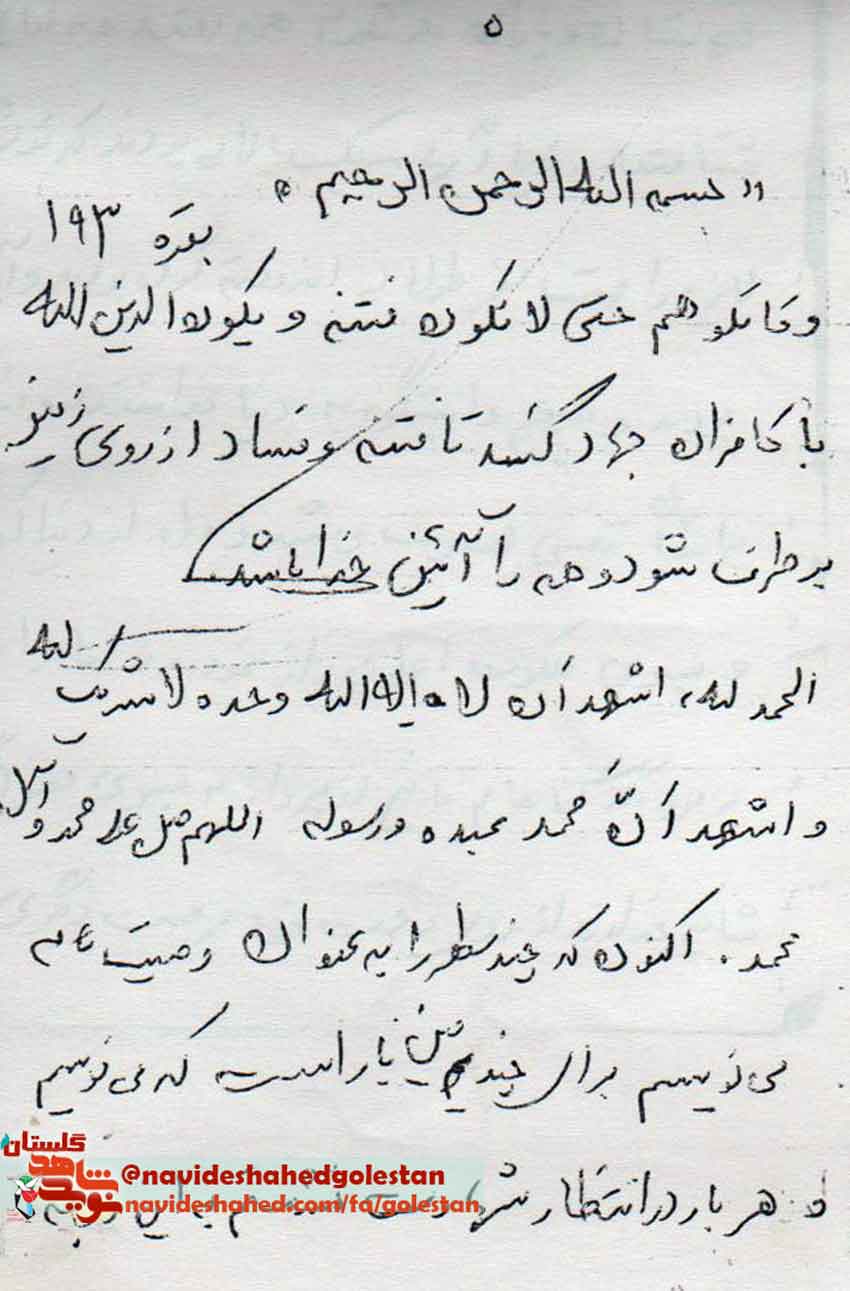 ۵
« بسمه الله الرحمن الرحیم »
بقره ۱۹۳
و قاتلوهم حتی لا تکون فتنه و یکون الدین الله
با کافران جهاد کنید تا فتنه و فساد از روی زمین
برطرف شود و همه را آئین خدا باشد
الحمد لله، اشهد ان لا اله الله وحده لا شریک له
و اشهد انّ محمد عبده و رسوله اللهم صل علی محمد و آل
محمد. اکنون که چند سطر را به عنوان وصیت نامه
می نویسم برای چندمین بار است که می نویسم
و هر بار در انتظار
گلستان
نوید شاهد
@navideshahedgolestan
navideshahed.com/fa/golestan